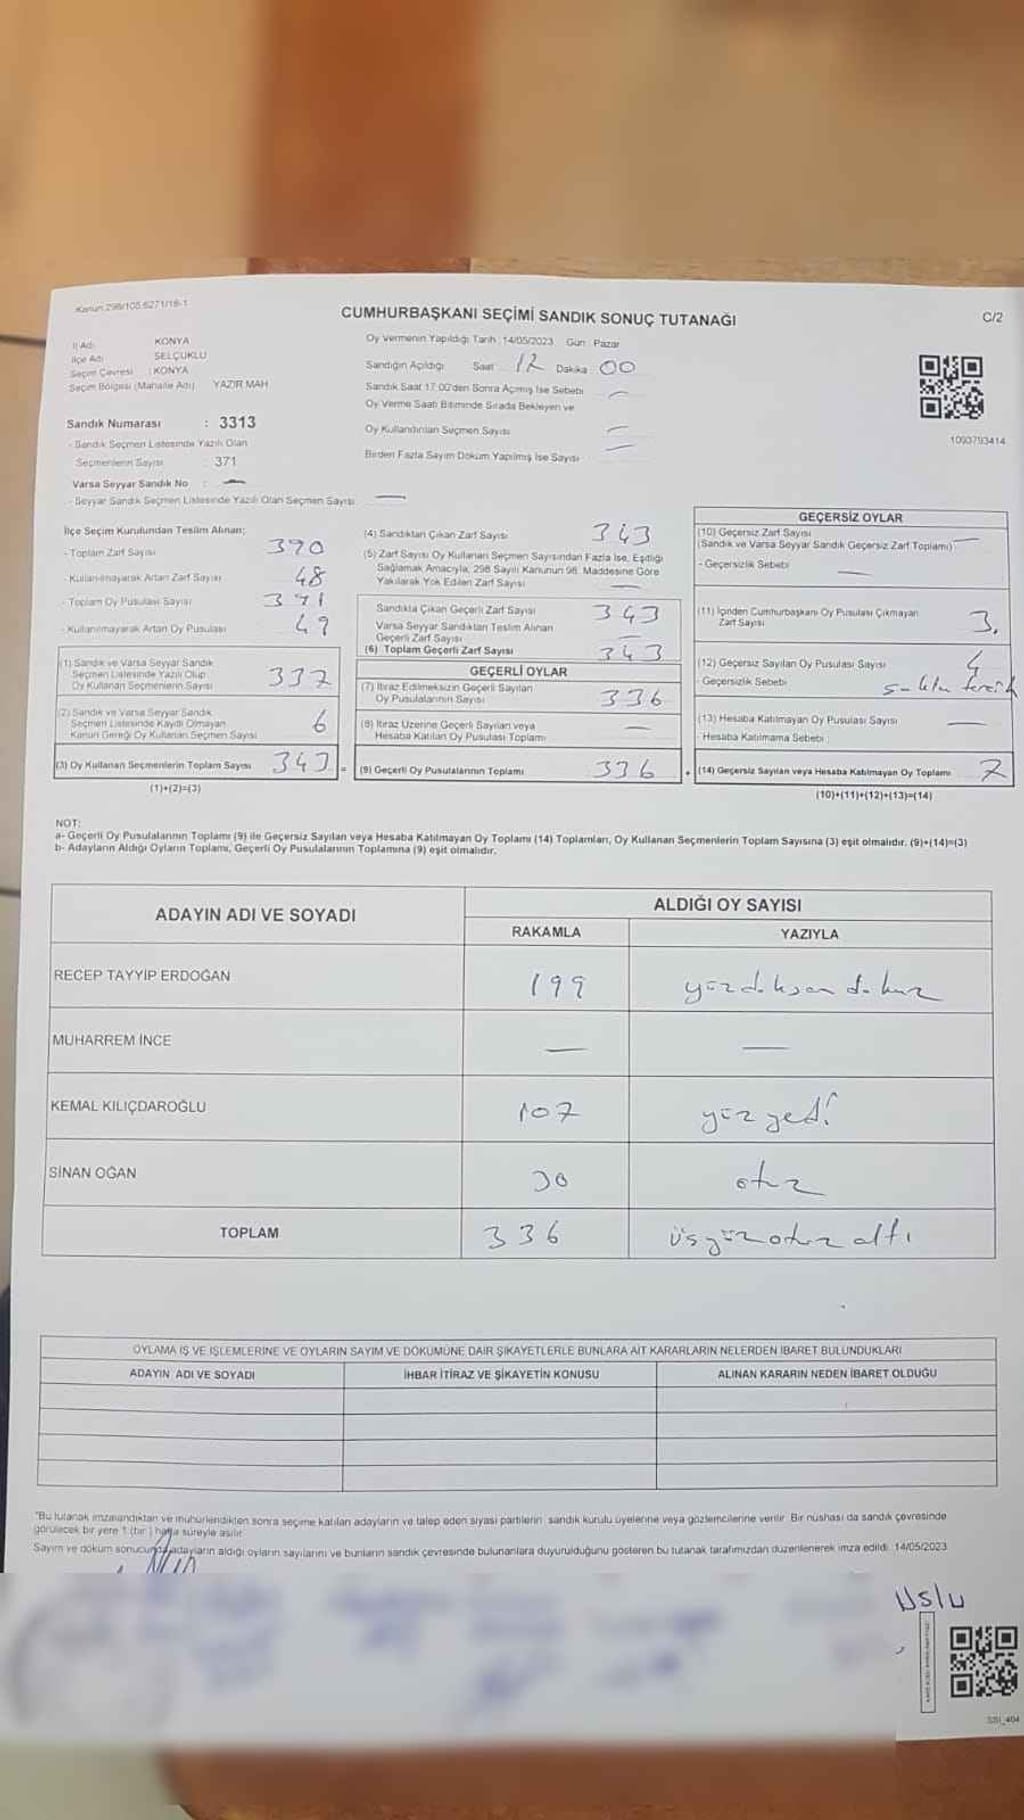 Kanun 298/105 6271/18-1
CUMHURBAŞKANI SEÇİMİ SANDIK SONUÇ TUTANAĞI
C/2
İl Adı : KONYA
İlçe Adı : SELÇUKLU
Seçim Çevresi : KONYA
Seçim Bölgesi (Mahalle Adı) YAZIR MAH
Oy Vermenin Yapıldığı Tarih : 14/05/2023 Gün : Pazar
Sandığın Açıldığı Saat 12 Dakika : 00
Sandık Saat 17.00'den Sonra Açılmış İse Sebebi —
Oy Verme Saati Bitiminde Sırada Bekleyen ve
Oy Kullandırılan Seçmen Sayısı —
Birden Fazla Sayım Döküm Yapılmış İse Sayısı —
1093793414
Sandık Numarası : 3313
- Sandık Seçmen Listesinde Yazılı Olan
Seçmenlerin Sayısı : 371
Varsa Seyyar Sandık No : —
- Seyyar Sandık Seçmen Listesinde Yazılı Olan Seçmen Sayısı —
İlçe Seçim Kurulundan Teslim Alınan;
- Toplam Zarf Sayısı 390
- Kullanılmayarak Artan Zarf Sayısı 48
- Toplam Oy Pusulası Sayısı 391
- Kullanılmayarak Artan Oy Pusulası 49
(1) Sandık ve Varsa Seyyar Sandık
Seçmen Listesinde Yazılı Olup
Oy Kullanan Seçmenlerin Sayısı 337
(2) Sandık ve Varsa Seyyar Sandık
Seçmen Listesinde Kaydı Olmayan
Kanun Gereği Oy Kullanan Seçmen Sayısı 6
(3) Oy Kullanan Seçmenlerin Toplam Sayısı 343 =
(1)+(2)=(3)
(4) Sandıktan Çıkan Zarf Sayısı 343
(5) Zarf Sayısı Oy Kullanan Seçmen Sayısından Fazla İse, Eşitliği
Sağlamak Amacıyla, 298 Sayılı Kanunun 98. Maddesine Göre
Yakılarak Yok Edilen Zarf Sayısı —
Sandıkta Çıkan Geçerli Zarf Sayısı 343
Varsa Seyyar Sandıktan Teslim Alınan
Geçerli Zarf Sayısı —
(6) Toplam Geçerli Zarf Sayısı 343
GEÇERLİ OYLAR
(7) İtiraz Edilmeksizin Geçerli Sayılan
Oy Pusulalarının Sayısı 336
(8) İtiraz Üzerine Geçerli Sayılan veya
Hesaba Katılan Oy Pusulası Toplamı —
(9) Geçerli Oy Pusulalarının Toplamı 336 +
GEÇERSİZ OYLAR
(10) Geçersiz Zarf Sayısı
(Sandık ve Varsa Seyyar Sandık Geçersiz Zarf Toplamı) —
- Geçersizlik Sebebi —
(11) İçinden Cumhurbaşkanı Oy Pusulası Çıkmayan
Zarf Sayısı 3.
(12) Geçersiz Sayılan Oy Pusulası Sayısı 4
- Geçersizlik Sebebi
(13) Hesaba Katılmayan Oy Pusulası Sayısı —
- Hesaba Katılmama Sebebi :
(14) Geçersiz Sayılan veya Hesaba Katılmayan Oy Toplamı 7
(10)+(11)+(12)+(13)=(14)
NOT:
a- Geçerli Oy Pusulalarının Toplamı (9) ile Geçersiz Sayılan veya Hesaba Katılmayan Oy Toplamı (14) Toplamları, Oy Kullanan Seçmenlerin Toplam Sayısına (3) eşit olmalıdır. (9)+(14)=(3)
b- Adayların Aldığı Oyların Toplamı, Geçerli Oy Pusulalarının Toplamına (9) eşit olmalıdır.
ADAYIN ADI VE SOYADI
ALDIĞI OY SAYISI
RAKAMLA YAZIYLA
RECEP TAYYİP ERDOĞAN 199 yüzdoksan dokuz
MUHARREM İNCE — —
KEMAL KILIÇDAROĞLU 107 yüzyedi
SİNAN OĞAN 30 otuz
TOPLAM 336 üçyüzotuz altı
OYLAMA İŞ VE İŞLEMLERİNE VE OYLARIN SAYIM VE DÖKÜMÜNE DAİR ŞİKAYETLERLE BUNLARA AİT KARARLARIN NELERDEN İBARET BULUNDUKLARI
ADAYIN ADI VE SOYADI İHBAR İTİRAZ VE ŞİKAYETİN KONUSU ALINAN KARARIN NEDEN İBARET OLDUĞU
"Bu tutanak imzalandıktan ve mühürlendikten sonra seçime katılan adayların ve talep eden siyasi partilerin sandık kurulu üyelerine veya gözlemcilerine verilir. Bir nüshası da sandık çevresinde
görülecek bir yere 1 (bir) hafta süreyle asılır.
Sayım ve döküm sonucunda adayların aldığı oyların sayılarını ve bunların sandık çevresinde bulunanlara duyurulduğunu gösteren bu tutanak tarafımızdan düzenlenerek imza edildi. 14/05/2023
Uslu
SSI_404